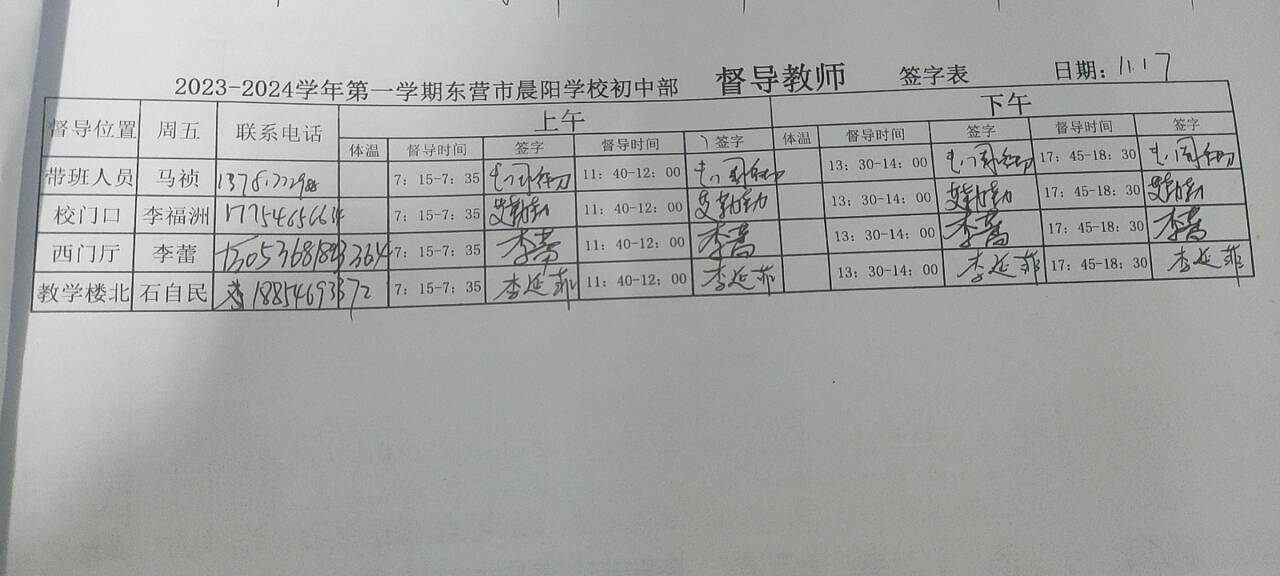 2023-2024学年第一学期东营市晨阳学校初中部 督导教师 签字表 日期：11.17
督导位置 周五 联系电话 上午 下午
体温 督导时间 签字 督导时间 签字 体温 督导时间 签字 督导时间 签字
带班人员 马祯 7：15-7：35 11：40-12：00 13：30-14：00 17：45-18：30
校门口 李福洲 17754656634 7：15-7：35 11：40-12：00 13：30-14：00 17：45-18：30
西门厅 李蕾 7：15-7：35 李蒿 11：40-12：00 李蒿 13：30-14：00 李蒿 17：45-18：30 李蒿
教学楼北 石自民 18854693372 7：15-7：35 李延菲 11：40-12：00 李延菲 13：30-14：00 李延菲 17：45-18：30 李延菲